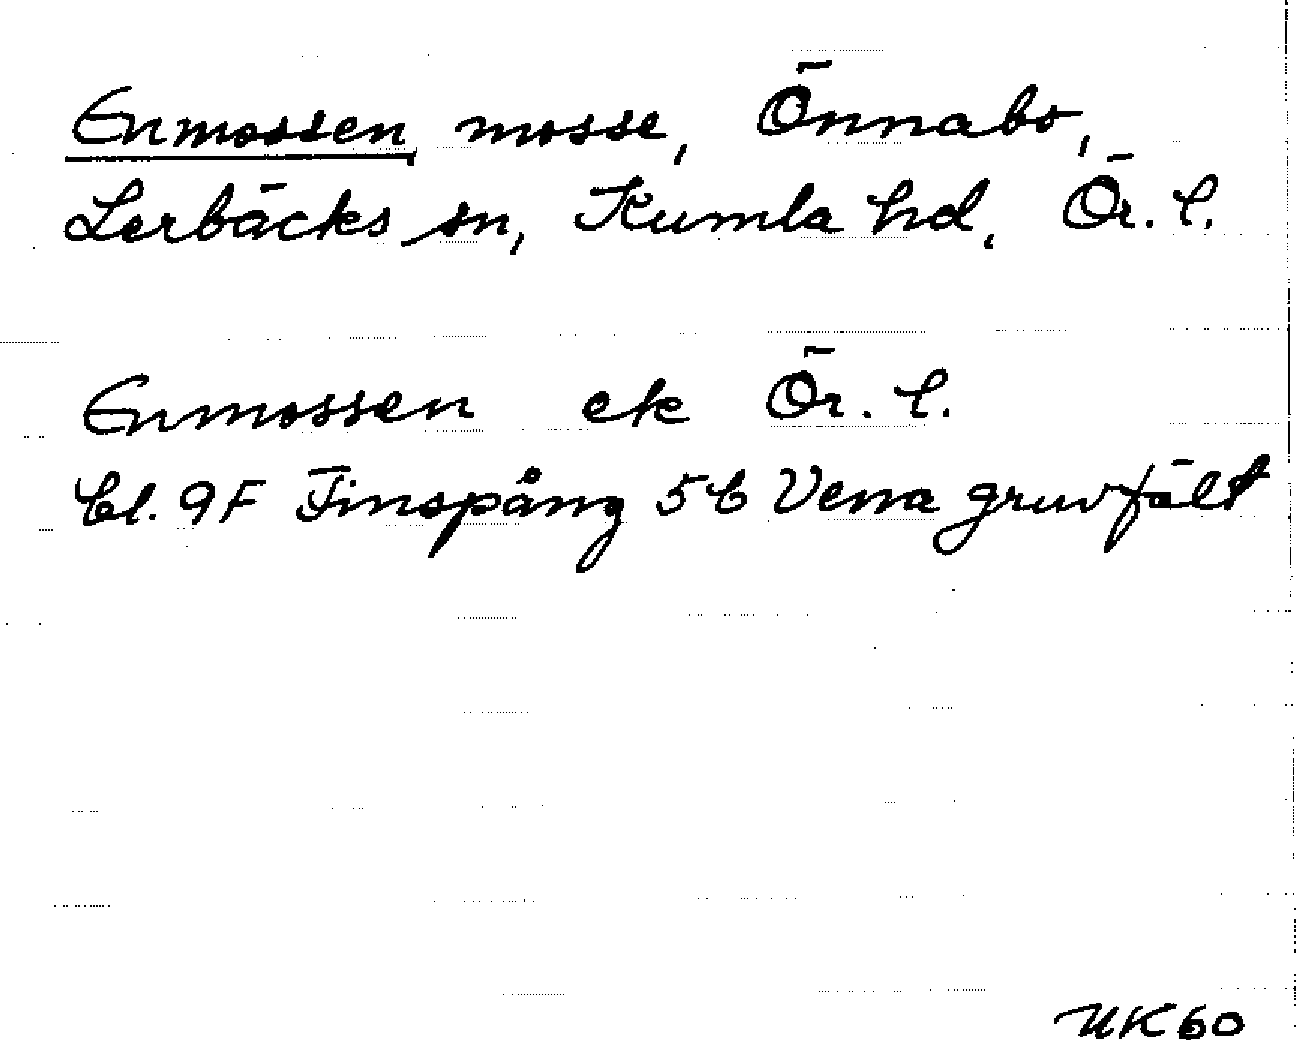 Enmossen mosse, Önnabo,
Lerbäcks sn, Kumla hd, Ör. l.
Enmossen ek Ör. l.
bl. 9F Finspång 5b Vena gruvfält
UK60